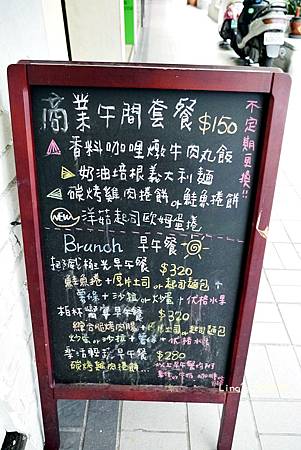 商業午間套餐 $150
不定期更換!!
香料咖哩燉牛肉丸飯
奶油培根義大利麵
碳烤雞肉捲餅 or 鮭魚捲餅
NEW 洋菇起司歐姆蛋捲
Brunch 早午餐
早午餐 $320
鮭魚捲+厚片土司 or 起司麵包
薯條+沙拉 or 炒蛋+優格水果
早午餐 $320
綜合 肉腸+ 土司 or 起司麵包
炒蛋 or 沙拉+薯條+優格水果
早午餐 $280
碳烤雞肉捲餅...